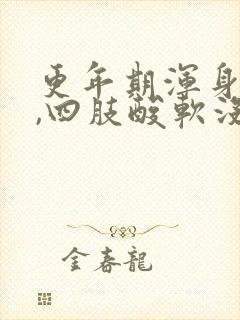 更年期渾身
,四肢酸軟沒
金春龍